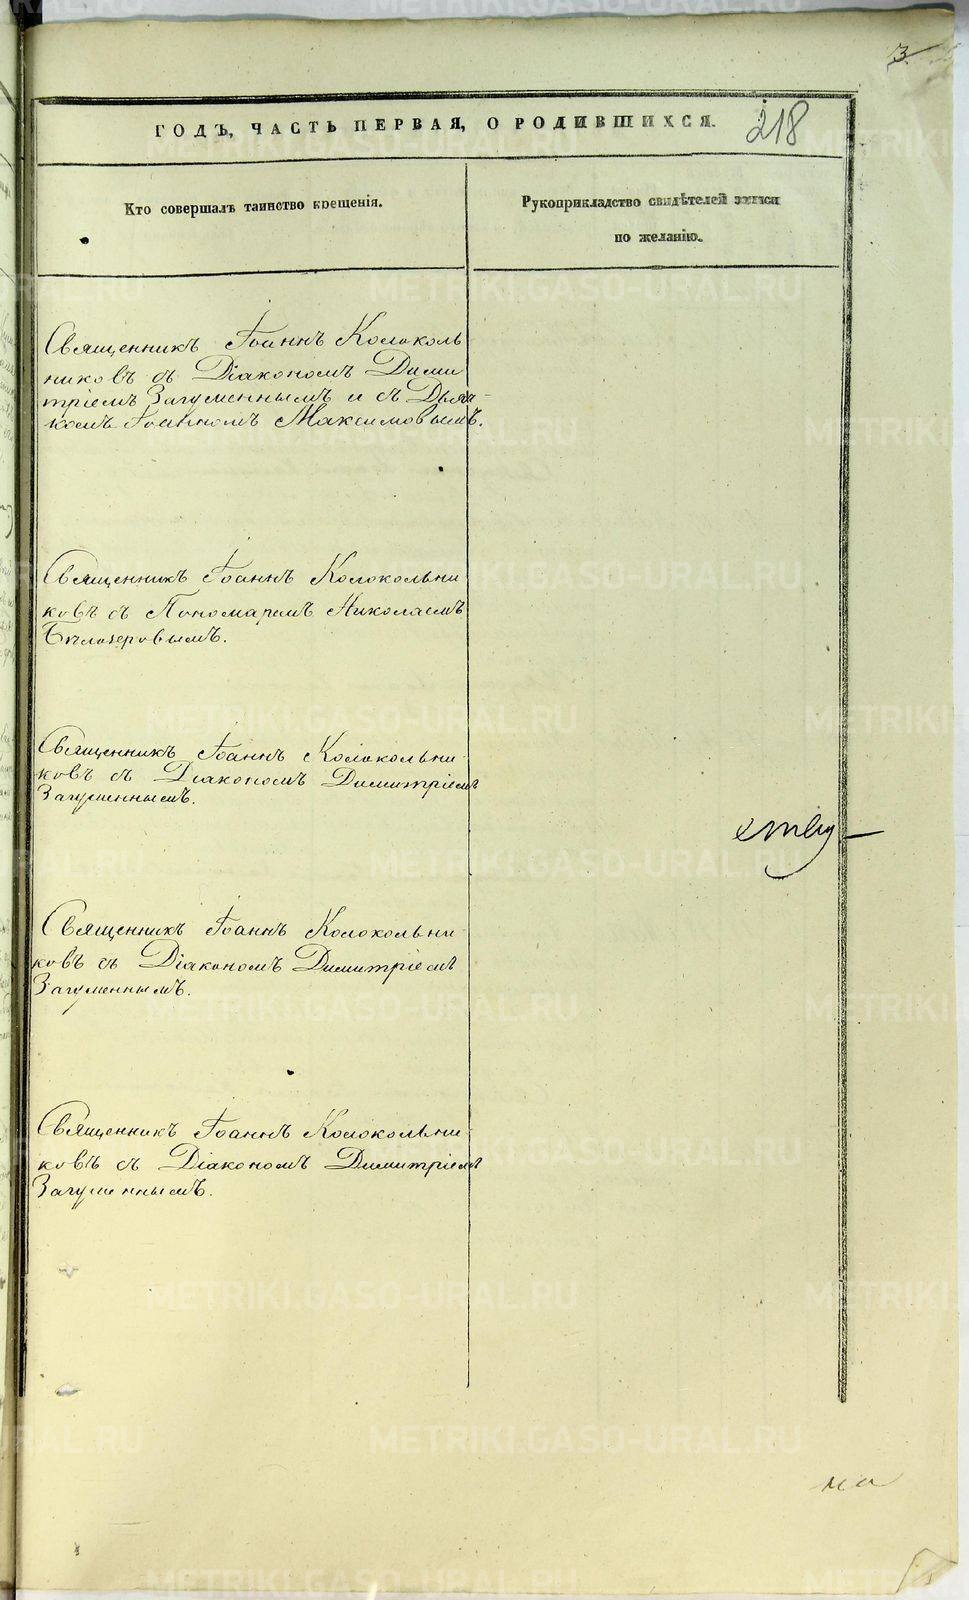 3
218
ГОДЪ, ЧАСТЬ ПЕРВАЯ, О РОДИВШИХСЯ.
Кто совершалъ таинство крещенія.
Рукоприкладство свидѣтелей записи
по желанію.
Священникъ Іоаннъ Колоколь
никовъ съ Діакономъ Дими
тріемъ Загуменнымъ и съ Дьяч-
комъ Іоанномъ Максимовымъ.
Священникъ Іоаннъ Колокольни
ковъ съ Пономаремъ Николаемъ
Бѣлозеровымъ.
Священникъ Іоаннъ Колокольни-
ковъ съ Діакономъ Димитріемъ
Загуменнымъ.
Священникъ Іоаннъ Колокольни-
ковъ съ Діакономъ Димитріемъ
Загуменнымъ.
Священникъ Іоаннъ Колокольни-
ковъ съ Діакономъ Димитріемъ
Загуменнымъ.
METRIKI.GASO-URAL.RU